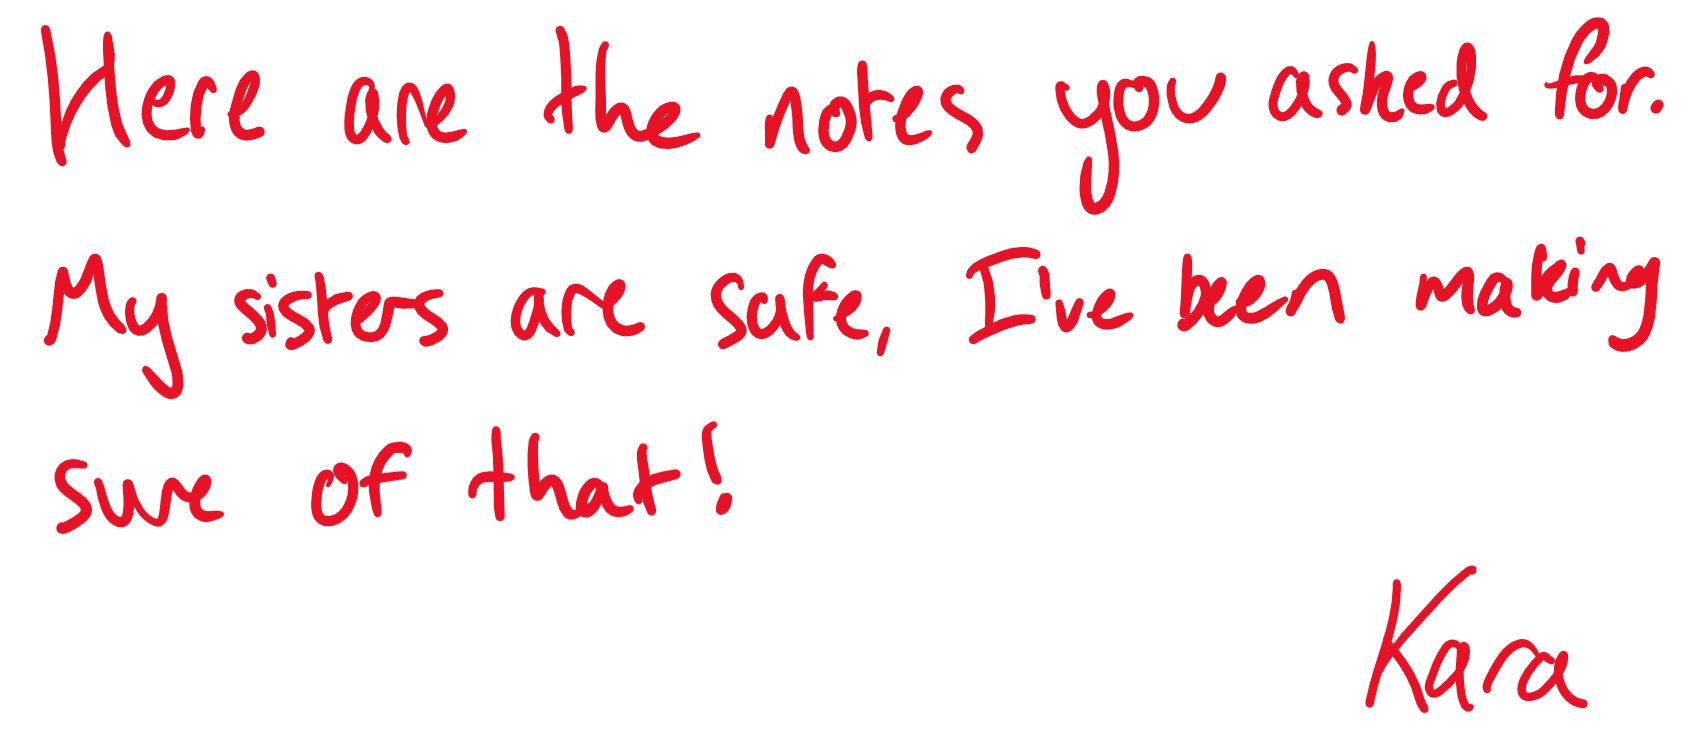 Here are the notes you asked for.
My sisters are safe, I've been making
sure of that!
Kara